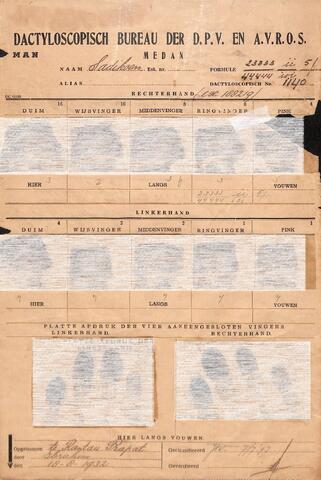 DACTYLOSCOPISCH BUREAU DER D.P.V. EN A.V.R.O.S.
MAN MEDAN
NAAM Sadikoen Est. nr. FORMULE 23333 ii 5/
44444
ALIAS DACTYLOSCOPISCH Nr. 1140
RECHTERHAND
16 16 8 8 4
DUIM WIJSVINGER MIDDENVINGER RINGVINGER PINK
HIER LANGS VOUWEN
23333 ii 5/
44444
LINKERHAND
4 2 2 1 1
DUIM WIJSVINGER MIDDENVINGER RINGVINGER PINK
HIER LANGS VOUWEN
PLATTE AFDRUK DER VIER AANEENGESLOTEN VINGERS
LINKERHAND. RECHTERHAND.
HIER LANGS VOUWEN.
Opgenomen te Rantau Prapat Geclassificeerd
door Ibrahim
den 18-8-1932 Geverifieerd